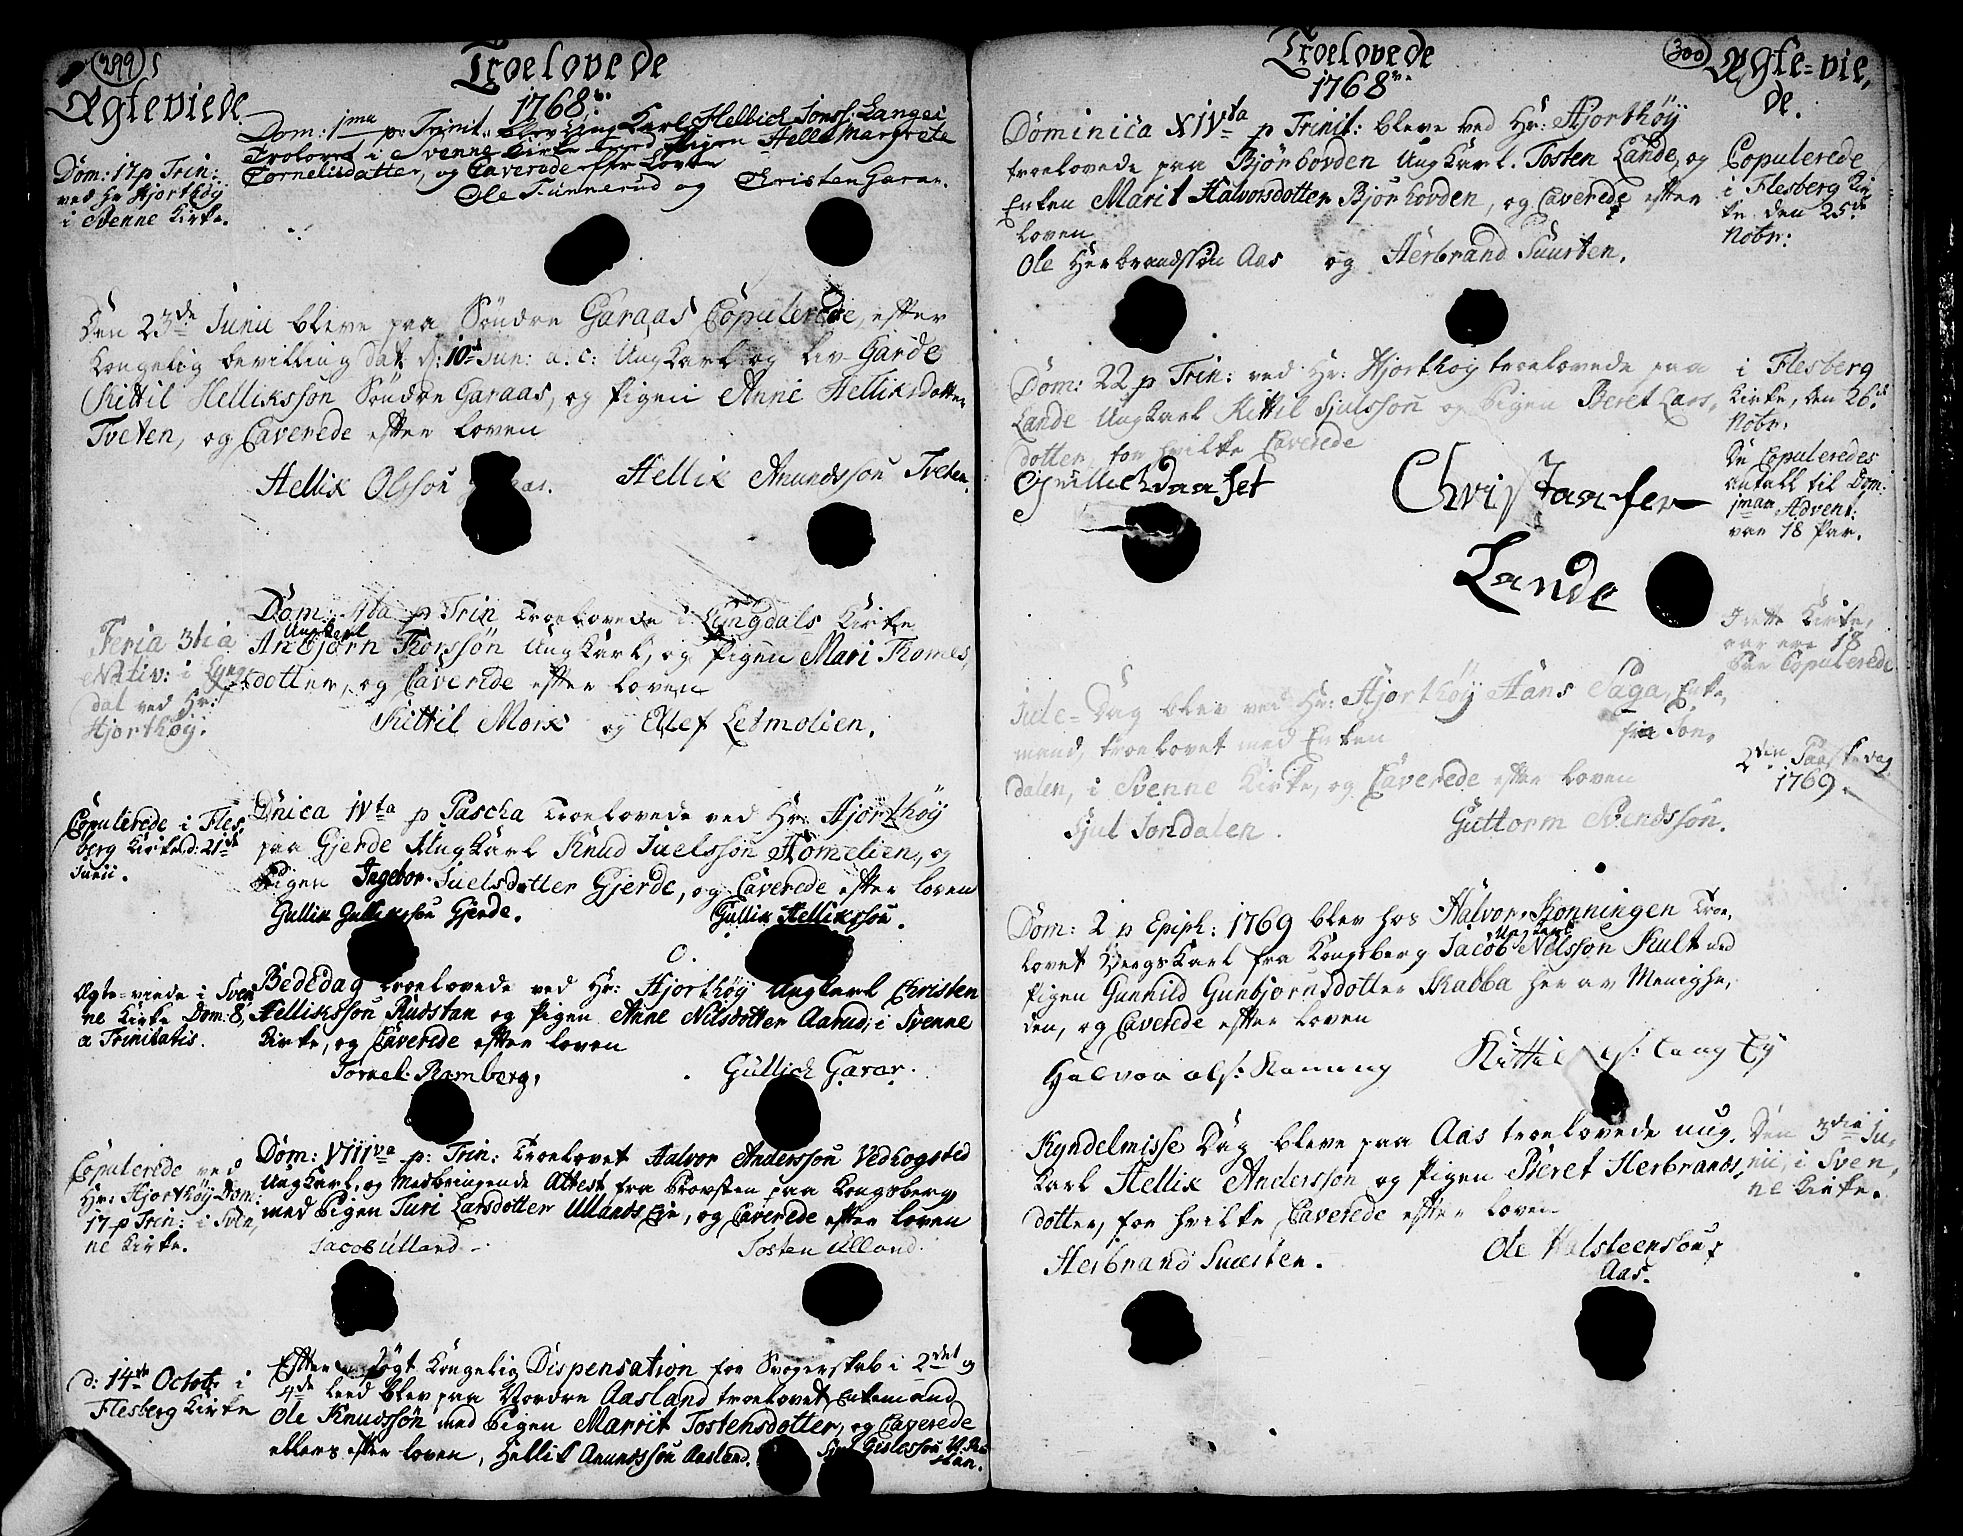 299
Troelovede
1768
Ægteviede
Dom: 1ma p: Trinit: blev Ung Karl Hellich Jonss: Langei
Trolovet i Svenne Kirke med Pigen Helle Margrete
Cornelisdatter, og Caverede efter Loven
Ole Tunnerud og Christen Garar.
Dom: 17 p Trin:
ved Hr Hjorthöÿ
i Svenne Kirke.
Den 23de Junii bleve paa Söndre Garaas Copulerede, efter
Kongelig bevilling dat. d: 10de Jun: a. c: Ung Karl og liv-Garde
Kittil Helliksson Söndre Garaas, og Pigen Anne Helliksdotter
Tveten, og Caverede efter loven
Hellik Olsson Garaas. Hellik Amundsson Tveten.
Dom: 4ta p Trin Troelovede i Lyngdals Kirke
Ungkarl
Anbjörn Thorssön Ungkarl, og Pigen Mari Thomes,
dotter, og Caverede efter loven
Kittil Morx og Ellef Letmolien.
Feria 3tia
Nativ: i Lyng,
dal ved Hr:
Hjorthöÿ.
Dnica IVta p Pascha Troelovede ved Hr: Hjorthöÿ
paa Gjerde Ungkarl Knud Juelssön Homelien, og
Pigen Ingebor Juelsdotter Gjerde, og Caverede efter loven
Gullik Gullikssön Gjerde. Gullik Hellikssön.
Copulerede i Fles,
berg Kirke d: 21de
Junii.
Bededag troelovede ved Hr: Hjorthöÿ Ungkarl Christen
Hellikssön Rudstan og Pigen Anne Nilsdotter Aarud, i Svenne
Kirke, og Caverede efter loven
Tornel. Ramberg, Güllich Garar.
Ægte-viede i Sven
ne Kirke Dom: 8,
a Trinitatis.
Dom: VIIIva p: Trin: Troelovet Halvor Anderssön Vedhogsted
Ungkarl, og medbringende Attest fra Provsten paa Kongsberg
med Pigen Turi Larsdotter Ullands Eje, og Caverede efter loven
Jacob Ulland Tosten Ulland.
Copulerede ved
Hr: Hjorthöÿ Dom:
17 p Trin: i Sven,
ne Kirke.
Efter søgt Kongelig Dispensation for Svogerskab i 2det og
4de leed blev paa Nordre Aasland troelovet Enkemand
Ole Knudssön med Pigen Marrit Tostensdotter, og Caverede
ellers efter loven, Hellik Amundssön Aasland.
d: 14de Octob: i
Flesberg Kirke
300
Troelovede
1768
Ægte=vie,
de.
Dominica XIVta p Trinit: bleve ved Hr: Hjorthöÿ
troelovede paa Bjørhovden Ungkarl. Tosten Lande, og
Enken Marit Halvorsdotter Bjørhovden, og Caverede efter
loven
Ole Herbrandssön Aas og Herbrand Suusten.
Copulerede
i Flesberg Kir
ke den 25de
Nobr:
Dom: 22 p Trin: ved Hr: Hjorthöy troelovede paa
Lande Ungkarl Kittil Sjulssön og Pigen Beret Lars,
dotter, for hvilke Caverede
Christaafer
Lande
i Flesberg
Kirke, den 26de
Nobr.
De Copuleredes
antall til Dom:
1maa Advent:
var 18 Par.
I rette Kirke,
aar ere 18
Par Copulerede
Jule=Dag blev ved Hr: Hjorthöÿ Hans Saga, Enke,
mand, troelovet med Enken fra Jon,
dalen, i Svenne Kirke, og Caverede efter loven
Sjul Jondalen. Guttorm Svendssön.
2den Paaskedag
1769.
Dom: 2 p Epiph: 1769 blev hos Halvor Konningen Troe,
Ungkarl
lovet Bergskarl fra Kongsberg Jacob Nilsson Kult med
Pigen Gunnild Gunbjørnsdotter Skabba her av Menighe,
den, og Caverede efter loven
Halvor ols: Kanning
Kyndelmisse Dag bleve paa Aas troelovede ung,
karl Hellik Anderssön og Pigen Beret Herbrands,
dotter, for hvilke Caverede efter loven
Herbrand Suusten. Ole Halsteensøn
Aas.
Den 3die Ju,
nii, i Sven,
ne Kirke.